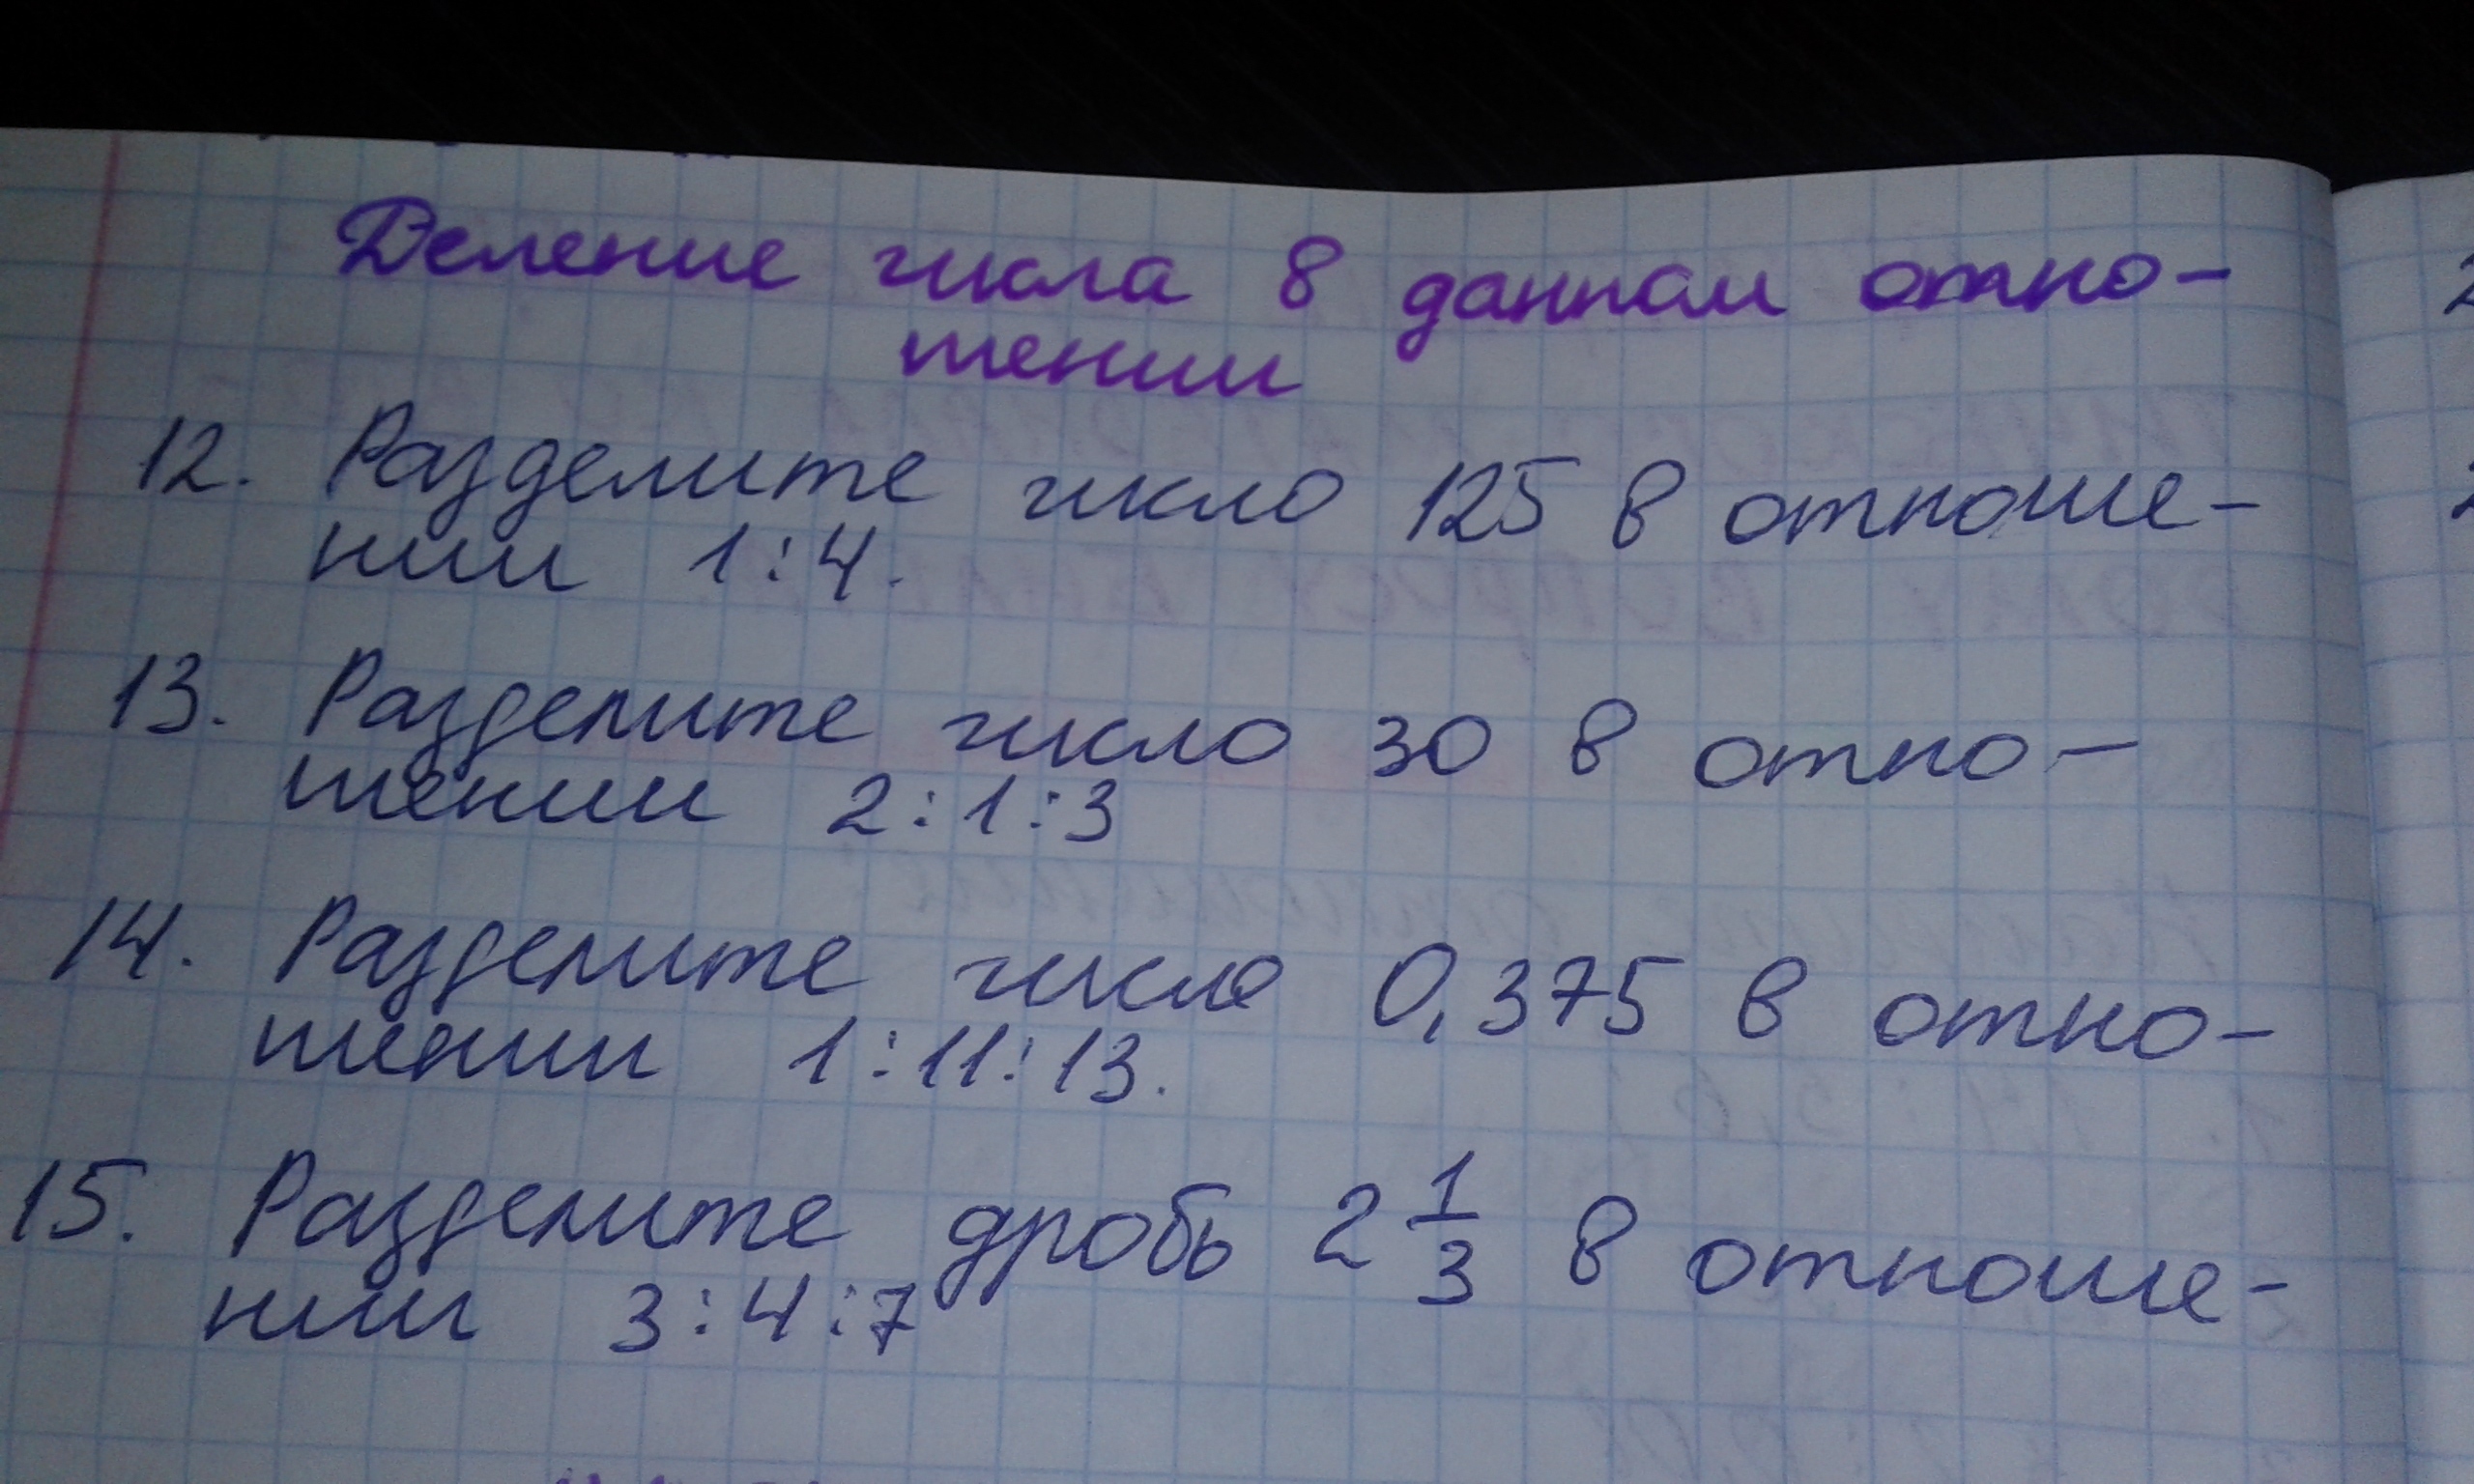 Деление числа в данном отно-
шении
12. Разделите число 125 в отноше-
нии 1:4.
13. Разделите число 30 в отно-
шении 2:1:3
14. Разделите число 0,375 в отно-
шении 1:11:13.
15. Разделите дробь 2 1/3 в отноше-
нии 3:4:7